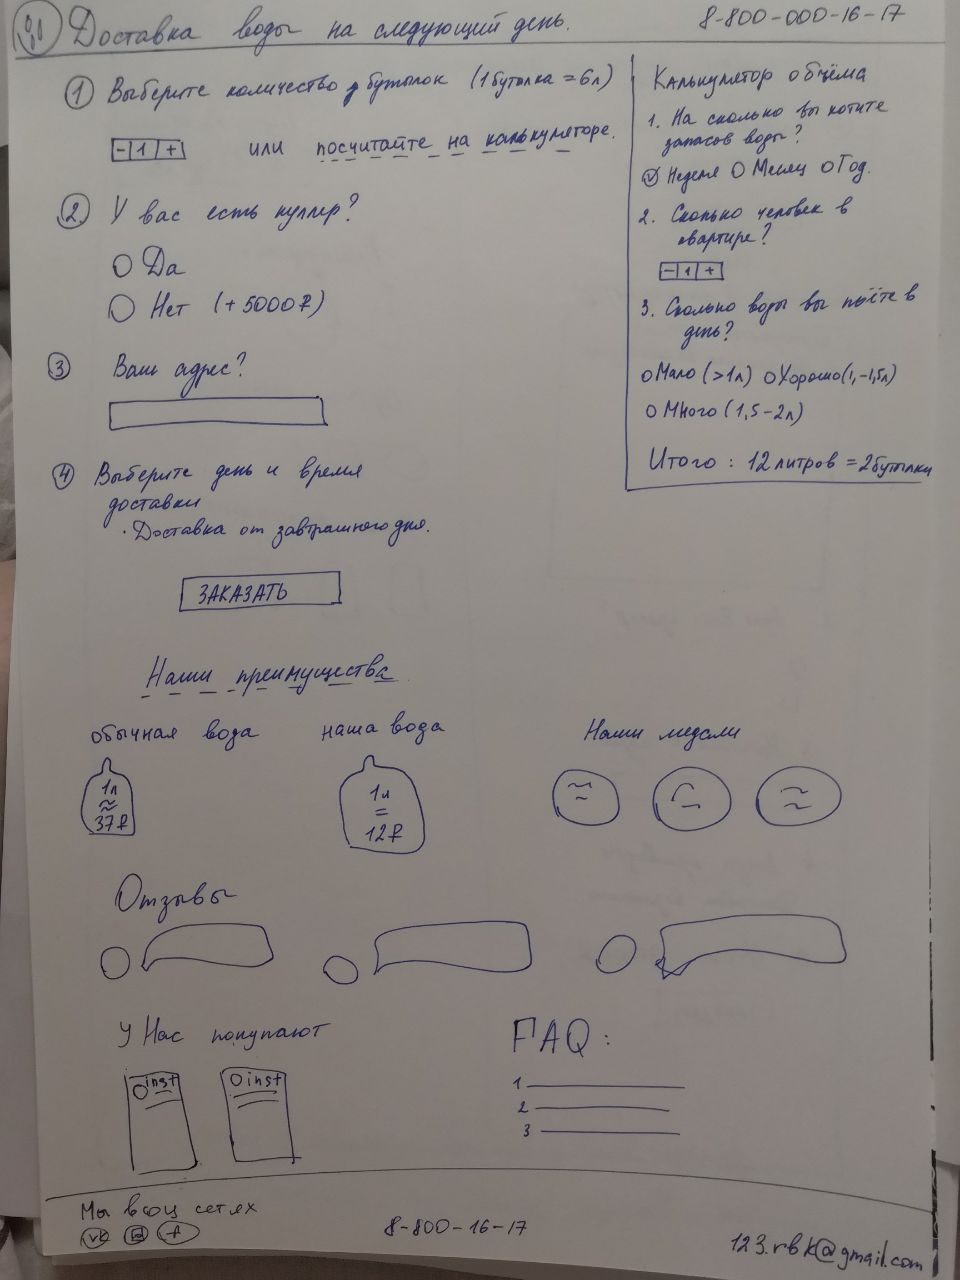 Доставка воды на следующий день.
8-800-000-16-17
1 Выберите количество бутылок (1 бутылка = 6л)
- 1 + или посчитайте на калькуляторе.
2 У вас есть куллер?
Да
Нет (+5000₽)
3 Ваш адрес?
4 Выберите день и время
доставки
· Доставка от завтрашнего дня.
ЗАКАЗАТЬ
Калькулятор объёма
1. На сколько вы хотите
запасов воды?
Неделя Месяц Год.
2. Сколько человек в
квартире?
- 1 +
3. Сколько воды вы пьёте в
день?
Мало (>1л) Хорошо (1,-1,5л)
Много (1,5-2л)
Итого: 12 литров = 2 бутылки
Наши преимущества
обычная вода
1л
≈
37₽
наша вода
1л
=
12₽
Наши медали
Отзывы
У Нас покупают
inst
inst
FAQ:
1
2
3
Мы в соц сетях
vk f
8-800-16-17
123.rbk@gmail.com